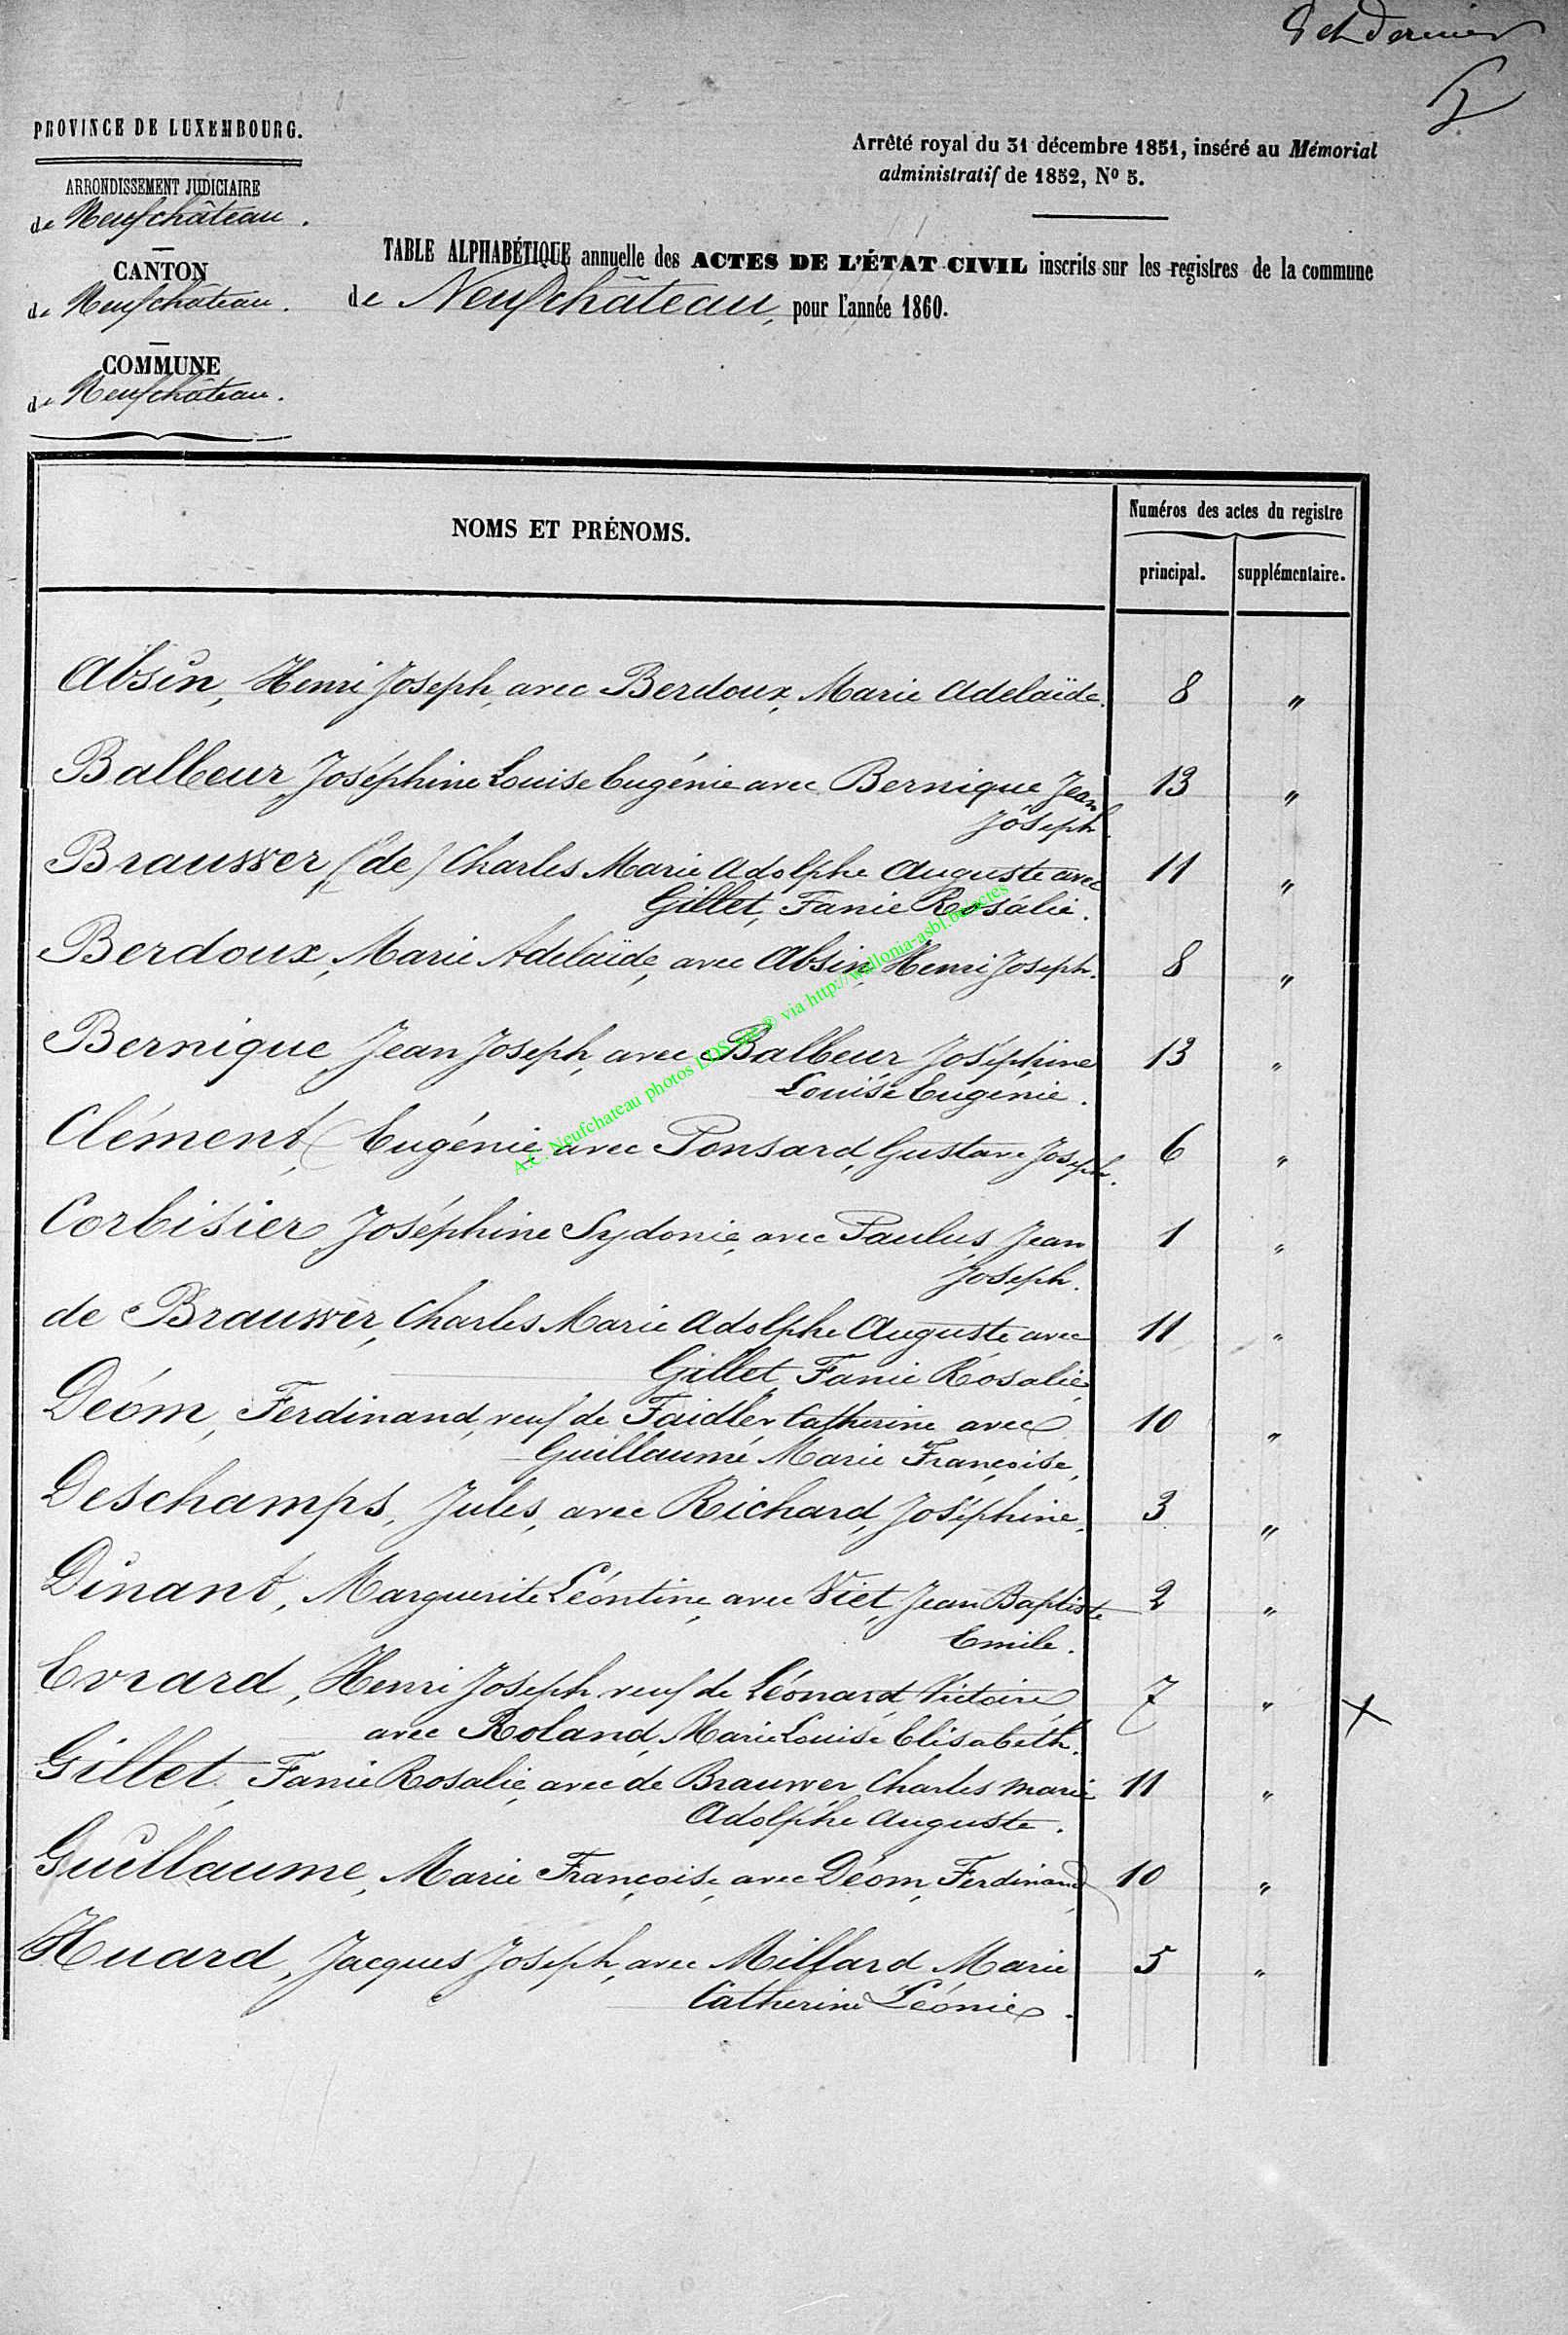 8 et dernier
PROVINCE DE LUXEMBOURG.
Arrêté royal du 31 décembre 1851, inséré au Mémorial
administratif de 1852, No 5.
ARRONDISSEMENT JUDICIAIRE
de Neufchâteau.
CANTON
de Neufchâteau.
COMMUNE
de Neufchâteau.
TABLE ALPHABÉTIQUE annuelle des ACTES DE L'ÉTAT CIVIL inscrits sur les registres de la commune
de Neufchâteau, pour l'année 1860.
NOMS ET PRÉNOMS.
Numéros des actes du registre
principal. supplémentaire.
Absin, Henri Joseph, avec Berdoux, Marie Adelaïde. 8 "
Balbeur, Joséphine Louise Eugénie avec Bernique, Jean 13 "
Joseph.
Brauwer, (de) Charles Marie Adolphe Auguste avec 11 "
Gillet, Fanie Rosalie.
Berdoux, Marie Adelaïde, avec Absin, Henri Joseph. 8 "
Bernique, Jean Joseph, avec Balbeur, Joséphine 13 "
Louise Eugénie.
Clément, Eugénie, avec Ponsard, Gustave Joseph. 6 "
Corbisier, Joséphine Sydonie, avec Paulus, Jean 1 "
Joseph.
de Brauwer, Charles Marie Adolphe Auguste avec 11 "
Gillet Fanie Rosalie,
Déom, Ferdinand, veuf de Faidler Catherine avec 10 "
Guillaume Marie Françoise,
Deschamps, Jules, avec Richard, Joséphine, 3 "
Dinant, Marguerite Léontine, avec Viet, Jean Baptiste 2 "
Emile.
Evrard, Henri Joseph, veuf de Léonard, Victoire, 7 " X
avec Roland, Marie Louise Elisabeth.
Gillet, Fanie Rosalie, avec de Brauwer, Charles Marie 11 "
Adolphe Auguste.
Guillaume, Marie Françoise, avec Déom, Ferdinand, 10 "
Huard, Jacques Joseph, avec Millard Marie 5 "
Catherine Léonie.
A.C. Neufchateau photos LDS via http://wallonia-asbl.be/actes